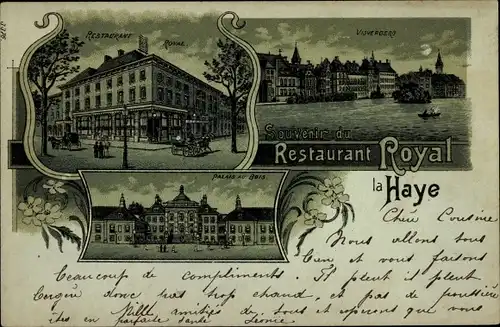 RESTAURANT ROYAL
VIJVERBERG
Souvenir du
Restaurant Royal
la Haye
PALAIS AU BOIS
Chère Cousine
Nous allons tous
bien et vous faisons
beaucoup de compliments. Il pleut il pleut
donc pas trop chaud, et pas de poussière
Mille amitiés de tous et espérons que vous
êtes en parfaite santé Léonie